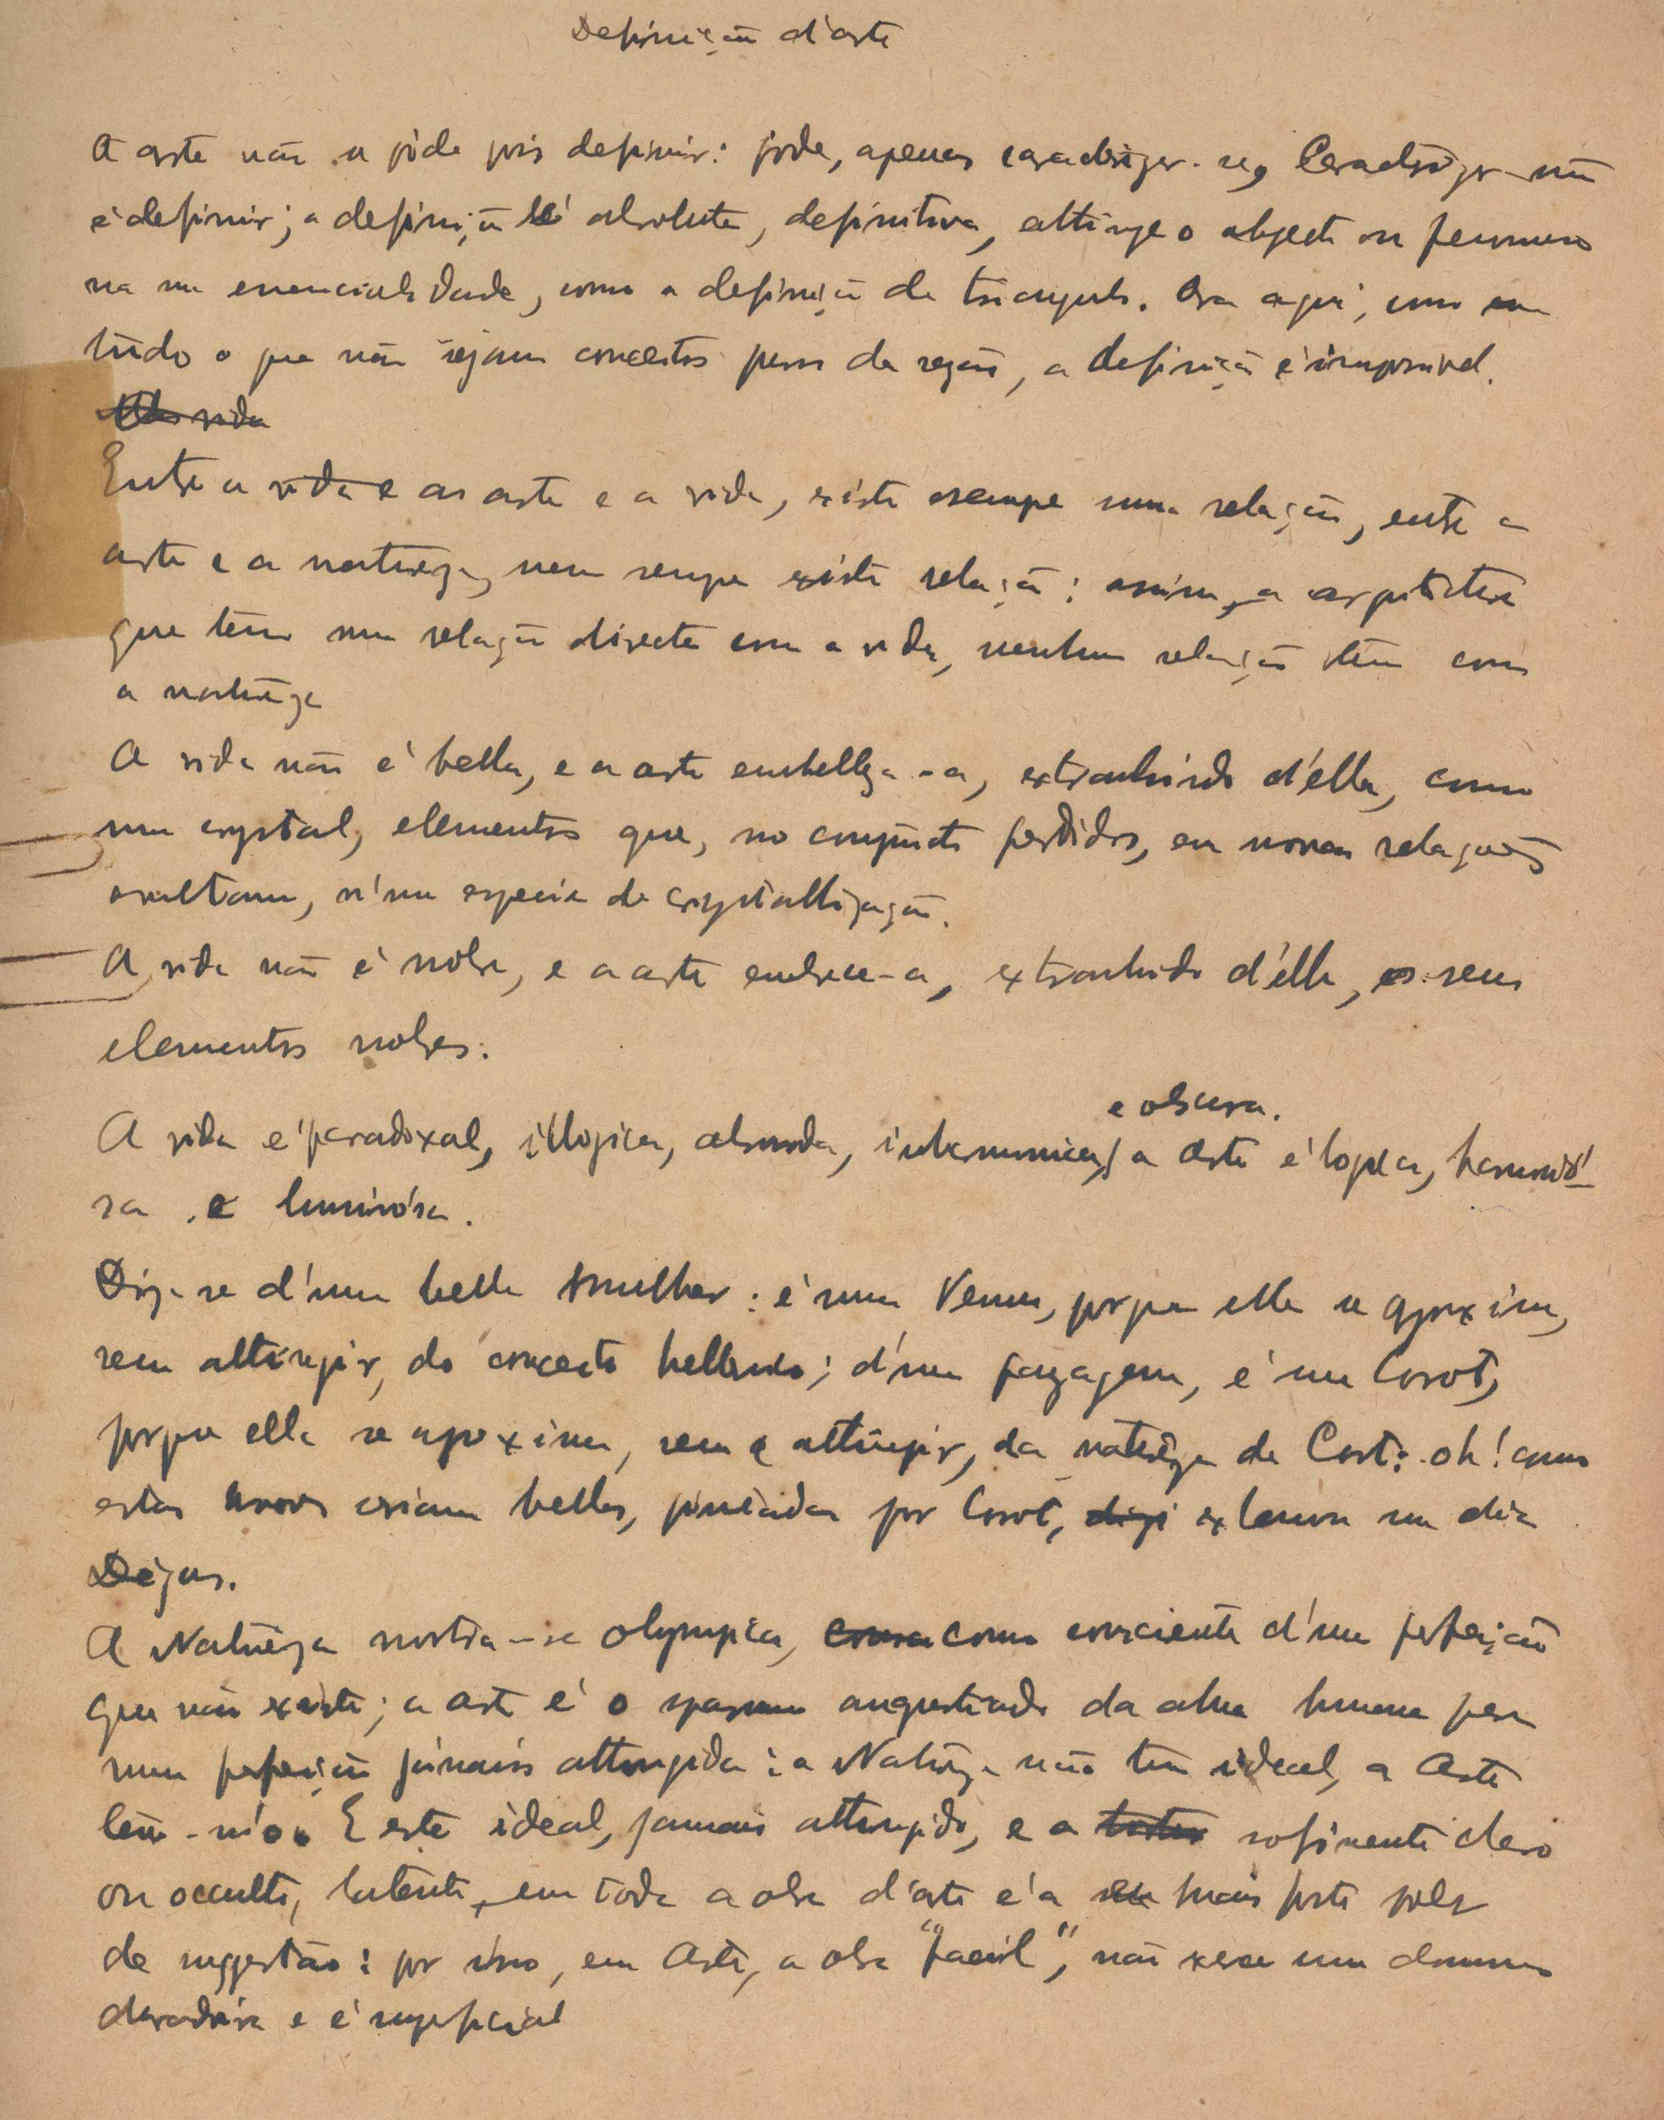 Definição d'arte
A arte não se póde pois definir: póde, apenas caracterizar-se, Caracterizar não
é definir; a definição é absoluta, definitiva, attinge o objecto ou fenomeno
na sua essencialidade, como a definição de triangulo. Ora aqui, como em
tudo o que não sejam conceitos puros da razão, a definição é impossivel.
vida
Entre a vida e as arte e a vida, existe sempre uma relação, entre a
arte e a natureza, nem sempre existe relação: assim, a arquitectura
que tem uma relação directa com a vida, nenhuma relação têm com
a natureza
A vida não é bella, e a arte embelleza-a, extrahindo d'ella, como
um crystal, elementos que, no conjuncto perdidos, em novas relações
exultam, n'uma especie de crystallização.
A vida não é nobre, e a arte enobrece-a, extrahindo d'élla, os seus
elementos nobres.
e obscura.
A vida é paradoxal, illogica, absurda, a arte é logica, harmonió-
sa e luminósa.
Diz-se d'uma bella mulher: é uma Venus, porque ella se aproxima,
sem attingir, do conceito helleno; d'uma payzagem, é um Corot,
porque ella se aproxima, sem attingir, da natureza de Corot: oh! como
estas arvores seriam bellas, pintadas por Corot, exclamou um dia
Dégas.
A Natureza mostra-se olympica, como como consciente d'uma perfeição
que não existe; a arte é o spasmo angustiado da alma humana para
uma perfeição jámais attingida: a Natureza não tem ideal, a Arte
tem-n'o. E este ideal, jamais attingido, e a sofrimento claro
ou occulto, latente, em toda a obra d'arte é a mais forte
de suggestão: por isso, em Arte, a obra "facil", não exerce um dominio
duradoiro e é superficial